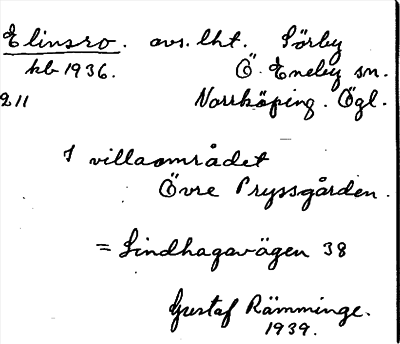 Elinsro. avs. lht. Sörby
kb 1936. Ö. Eneby sn.
211 Norrköping. Ögl.
I villaområdet
Övre Pryssgården.
= Lindhagavägen 38
Gustaf Rämminge.
1939.